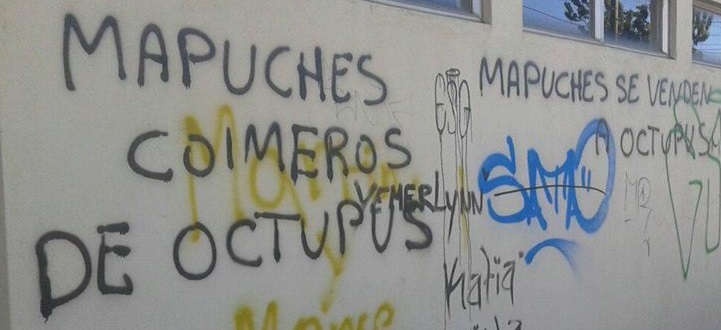 MAPUCHES
COIMEROS
DE OCTUPUS
MAPUCHES SE VENDEN
A OCTUPUS
ESG
YEMERLYNN
SAMO
Katia